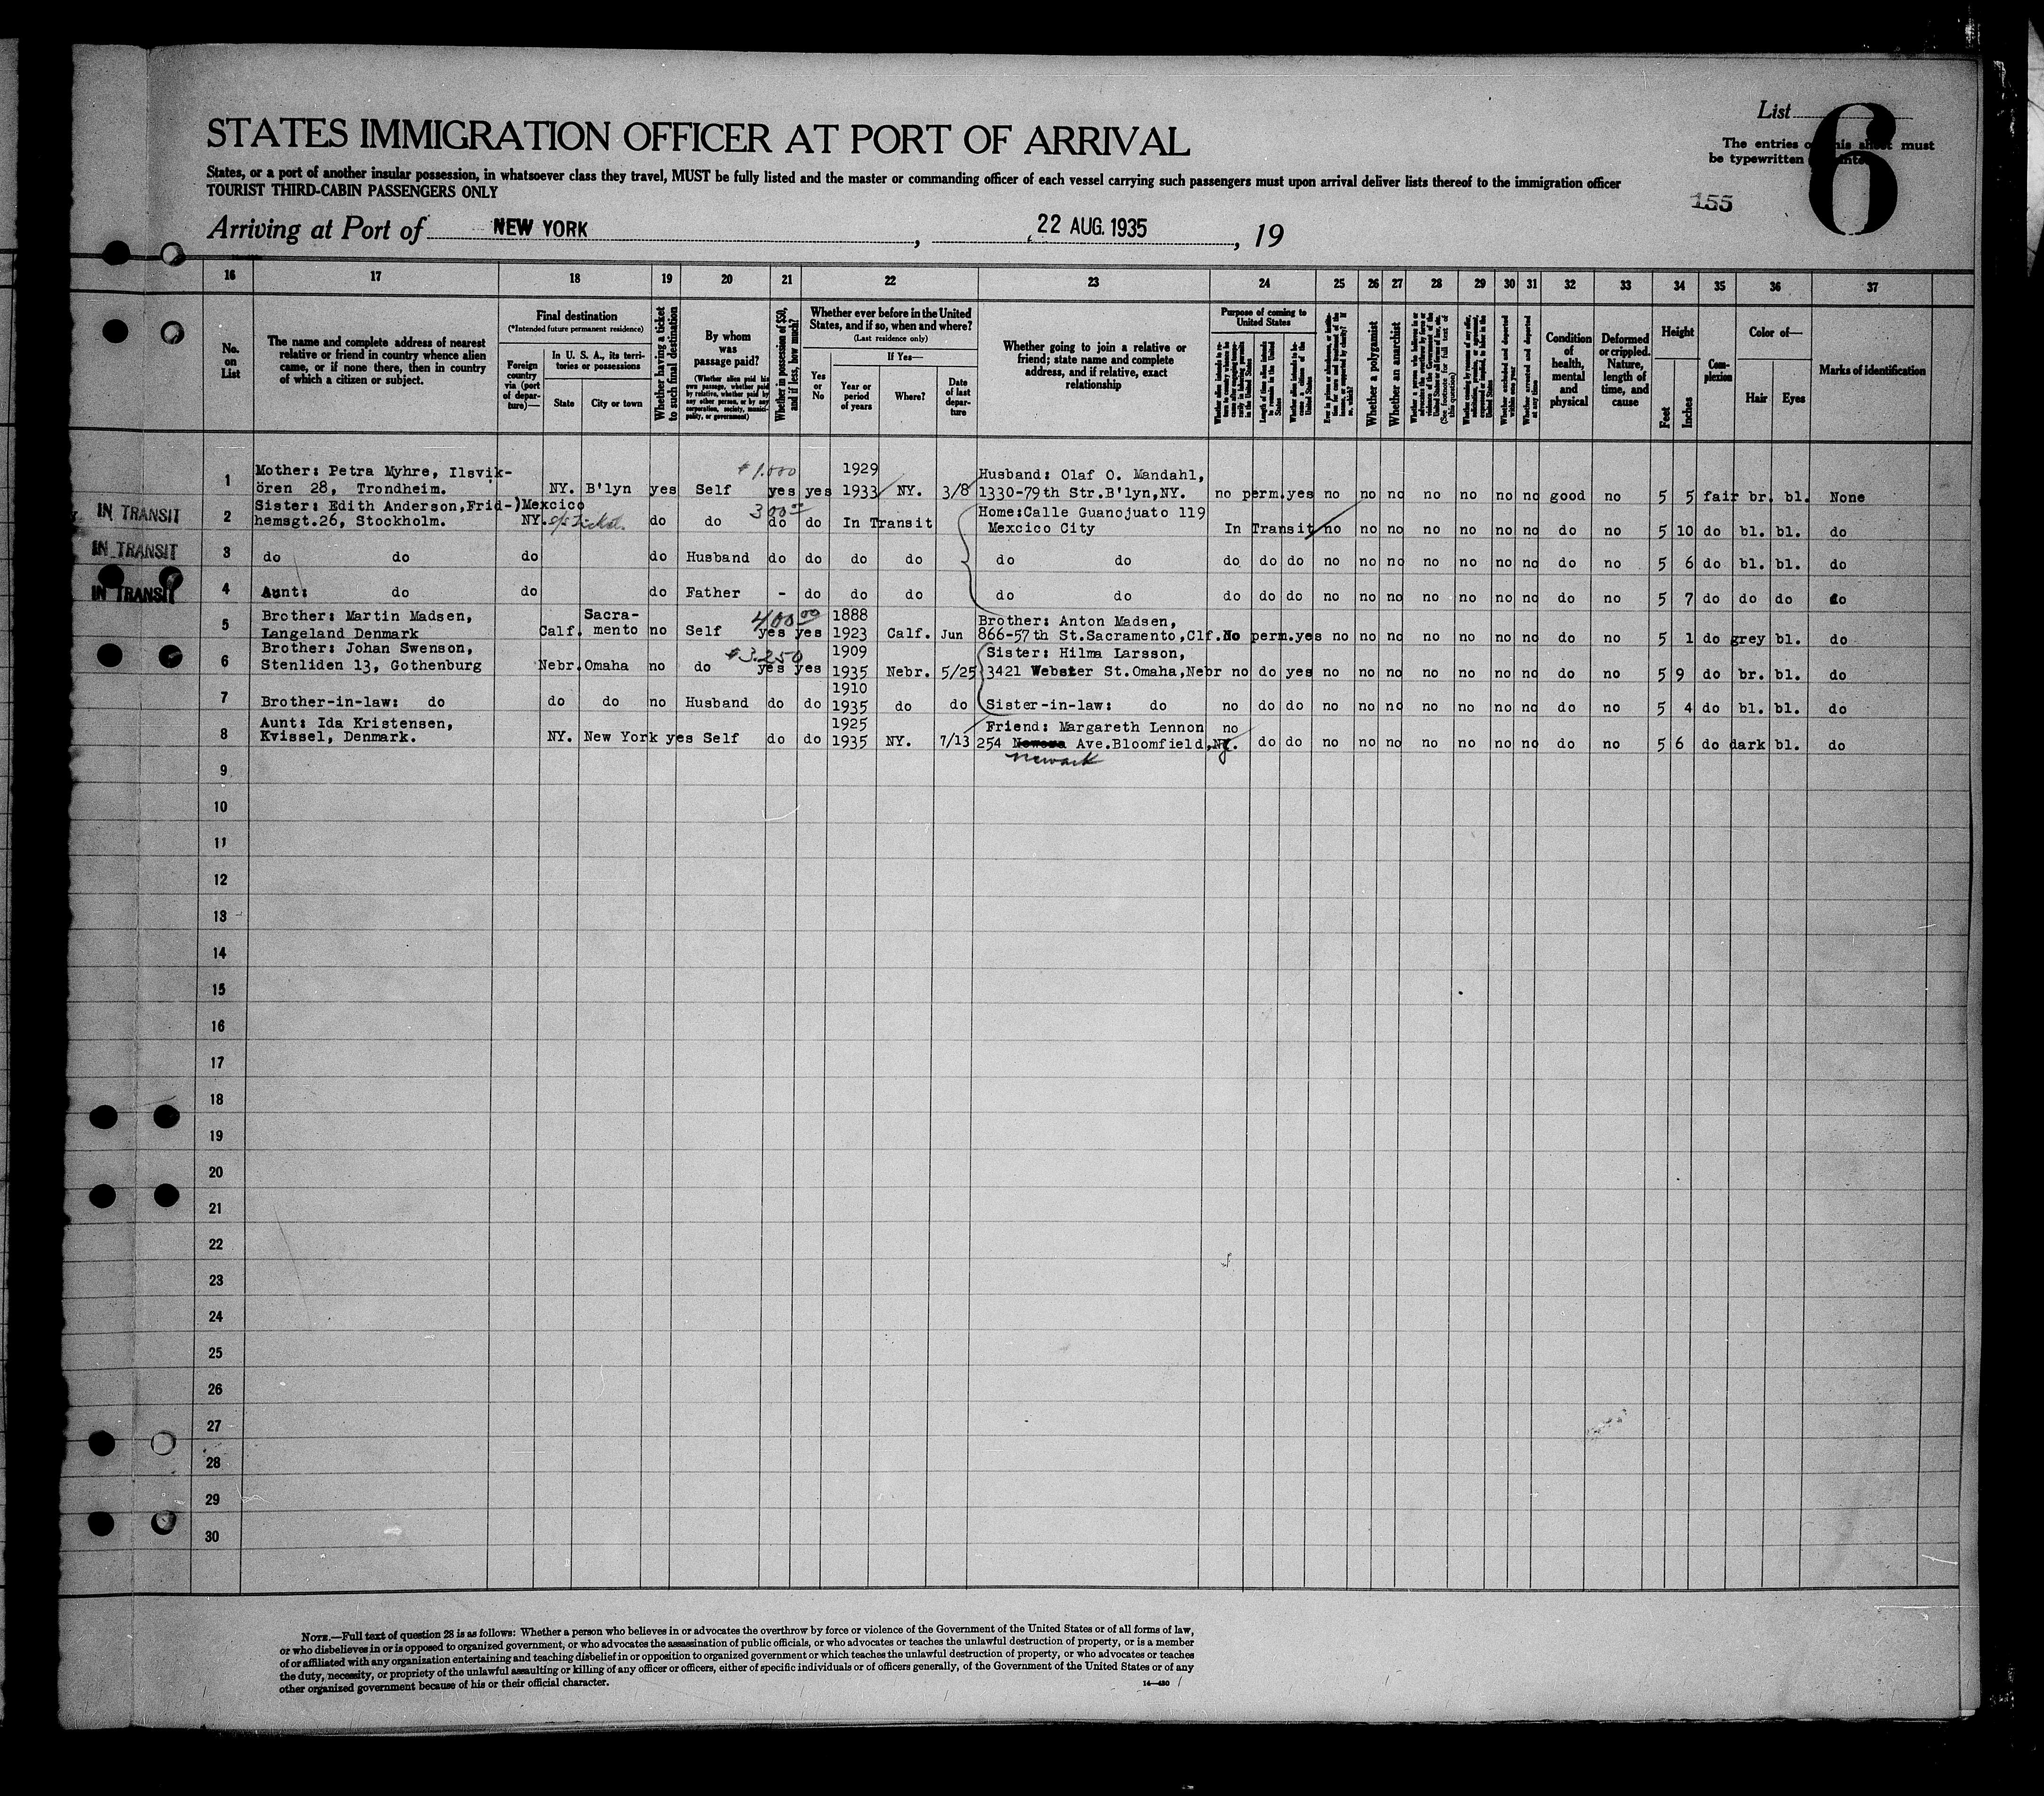 List
6
The entries on this sheet must
be typewritten
155
STATES IMMIGRATION OFFICER AT PORT OF ARRIVAL
States, or a port of another insular possession, in whatsoever class they travel, MUST be fully listed and the master or commanding officer of each vessel carrying such passengers must upon arrival deliver lists thereof to the immigration officer
TOURIST THIRD-CABIN PASSENGERS ONLY
Arriving at Port of NEW YORK, 22 AUG. 1935, 19
16 17 18 19 20 21 22 23 24 25 26 27 28 29 30 31 32 33 34 35 36 37
No. on List
The name and complete address of nearest
relative or friend in country whence alien
came, or if none there, then in country
of which a citizen or subject.
Final destination
(*Intended future permanent residence)
Foreign country via (port of departure)—
In U. S. A., its territories or possessions
State
City or town
Whether having a ticket to such final destination
By whom was passage paid?
(Whether alien paid his own passage, whether paid by relative, whether paid by any other person, or by any corporation, society, municipality, or government)
Whether in possession of $50, and if less, how much?
Whether ever before in the United States, and if so, when and where?
(Last residence only)
Yes or No
If Yes—
Year or period of years
Where?
Date of last departure
Whether going to join a relative or
friend; state name and complete
address, and if relative, exact
relationship
Purpose of coming to United States
Whether a polygamist
Whether an anarchist
Whether arrested and deported at any time
Condition of health, mental and physical
Deformed or crippled. Nature, length of time, and cause
Height
Feet
Inches
Complexion
Color of—
Hair
Eyes
Marks of identification
$1.000
1 Mother: Petra Myhre, Ilsvik-
ören 28, Trondheim. NY. B'lyn yes Self yes yes 1929 1933 NY. 3/8 Husband: Olaf O. Mandahl,
1330-79th Str.B'lyn,NY. no perm. yes no no no no no no no good no 5 5 fair br. bl. None
IN TRANSIT
300
2 Sister: Edith Anderson,Frid-)Mexcico
hemsgt.26, Stockholm. NY. do do do do In Transit Home:Calle Guanojuato 119
Mexcico City In Transit no no no no no no no do no 5 10 do bl. bl. do
IN TRANSIT
3 do do do do Husband do do do do do do do do do no no no no no no no do no 5 6 do bl. bl. do
IN TRANSIT
4 Aunt: do do do Father - do do do do do do do do no no no no no no no do no 5 7 do do do do
400 00
5 Brother: Martin Madsen,
Langeland Denmark Calf. Sacra-
mento no Self yes yes 1888 1923 Calf. Jun Brother: Anton Madsen,
866-57th St.Sacramento,Clf. No perm. yes no no no no no no no do no 5 1 do grey bl. do
$3.250
6 Brother: Johan Swenson,
Stenliden 13, Gothenburg Nebr. Omaha no do yes yes 1909 1935 Nebr. 5/25 Sister: Hilma Larsson,
3421 Webster St.Omaha,Nebr no do yes no no no no no no no do no 5 9 do br. bl. do
7 Brother-in-law: do do do no Husband do do 1910 1935 do do Sister-in-law: do no do do no no no no no no no do no 5 4 do bl. bl. do
8 Aunt: Ida Kristensen,
Kvissel, Denmark. NY. New York yes Self do do 1925 1935 NY. 7/13 Friend: Margareth Lennon
254 Ave.Bloomfield, no do do no no no no no no no do no 5 6 do dark bl. do
Newark
9
10
11
12
13
14
15
16
17
18
19
20
21
22
23
24
25
26
27
28
29
30
NOTE.—Full text of question 28 is as follows: Whether a person who believes in or advocates the overthrow by force or violence of the Government of the United States or of all forms of law,
or who disbelieves in or is opposed to organized government, or who advocates the assassination of public officials, or who advocates or teaches the unlawful destruction of property, or is a member
of or affiliated with any organization entertaining and teaching disbelief in or opposition to organized government or which teaches the unlawful destruction of property, or who advocates or teaches
the duty, necessity, or propriety of the unlawful assaulting or killing of any officer or officers, either of specific individuals or of officers generally, of the Government of the United States or of any
other organized government because of his or their official character.
14—480